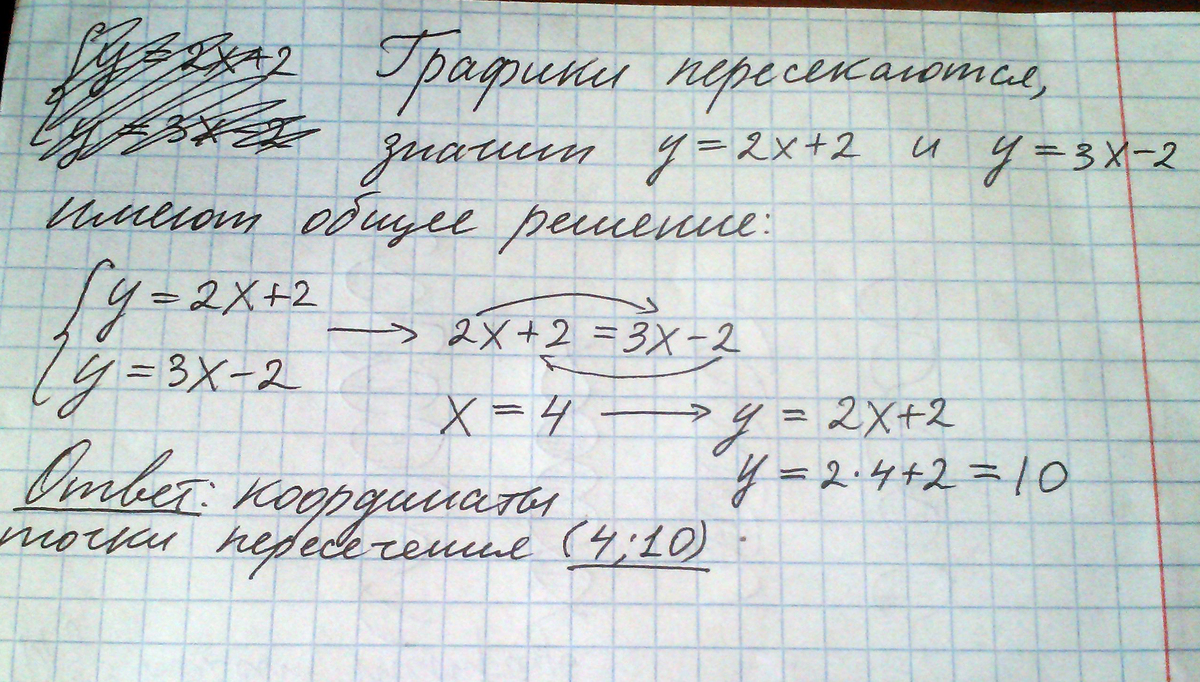 y = 2x+2
y = 3x-2
Графики пересекаются,
значит y = 2x+2 и y = 3x-2
имеют общее решение:
{ y = 2x+2
y = 3x-2
→ 2x+2 = 3x-2
x = 4 → y = 2x+2
y = 2·4+2 = 10
Ответ: координаты
точки пересечения (4;10)